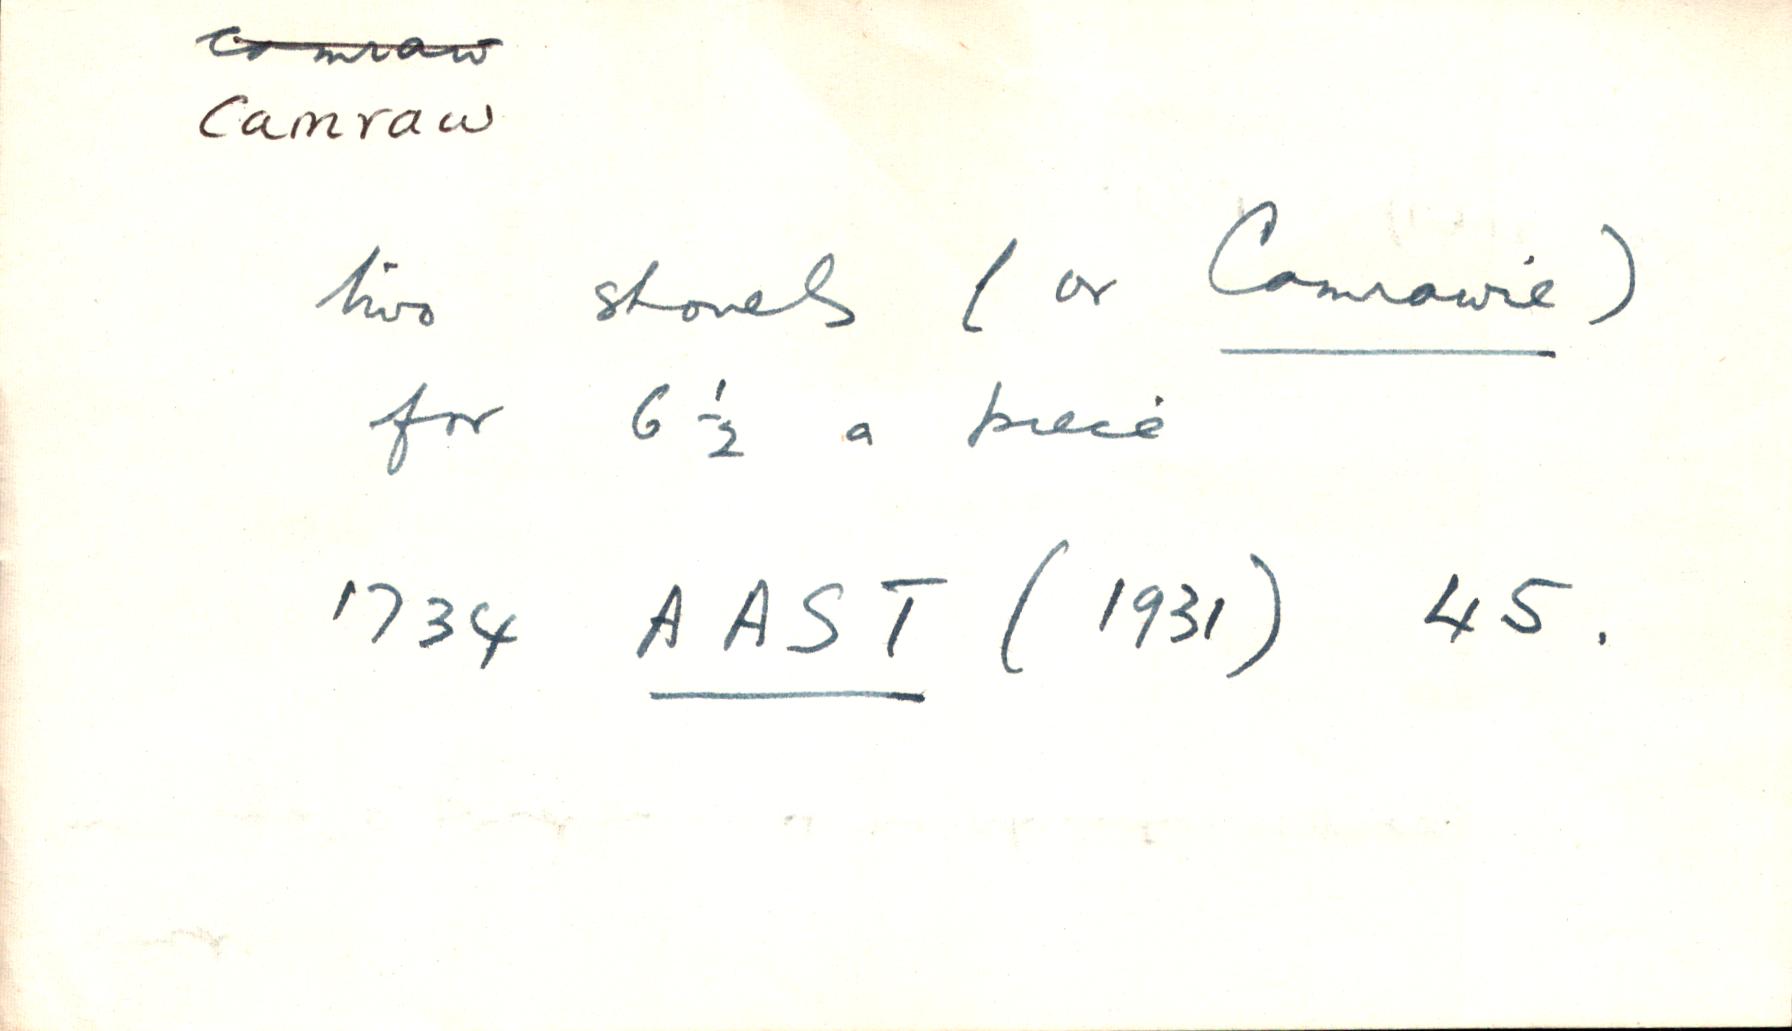 comraw
Camraw
two shovels (or Camrawie)
for 6 1/2 a piece
1734 AAST (1931) 45.